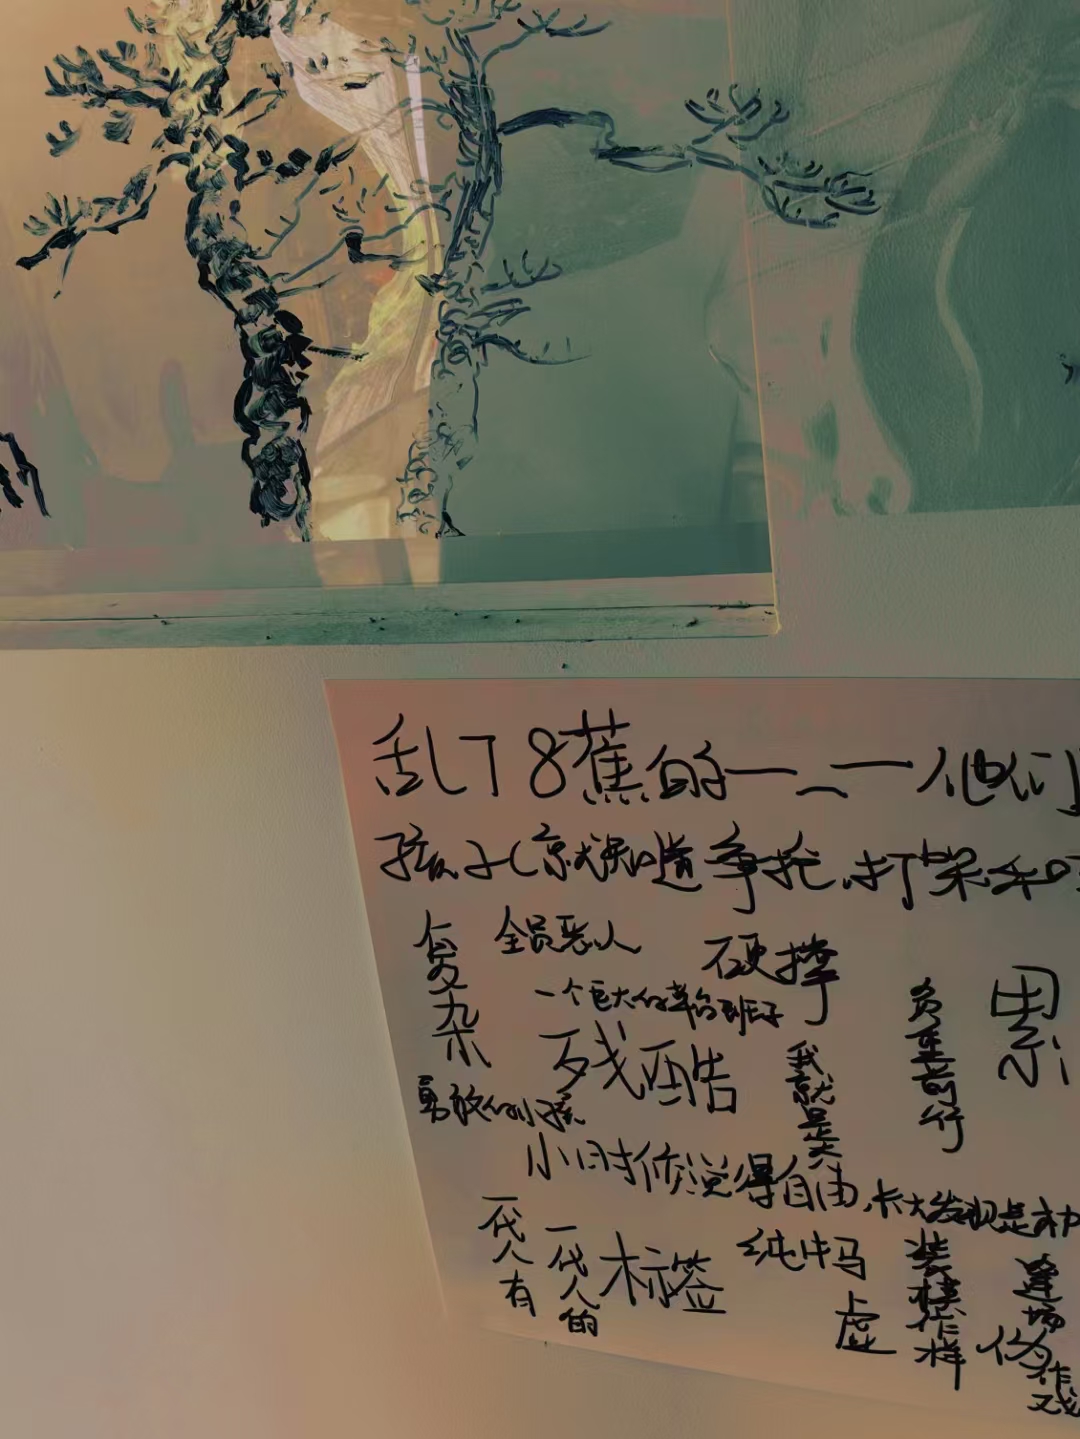 乱了8蕉的一二一他们
孩子(京式知道争抢,打架和
复杂
全员恶人
硬撑
累
一个巨大的草台班子
负重前行
残酷
我就是
勇敢的小孩
小时候觉得自由,长大发现是
一代人有
一代人的
标签
纯牛马
装模作样
逢场作戏
虚
伪